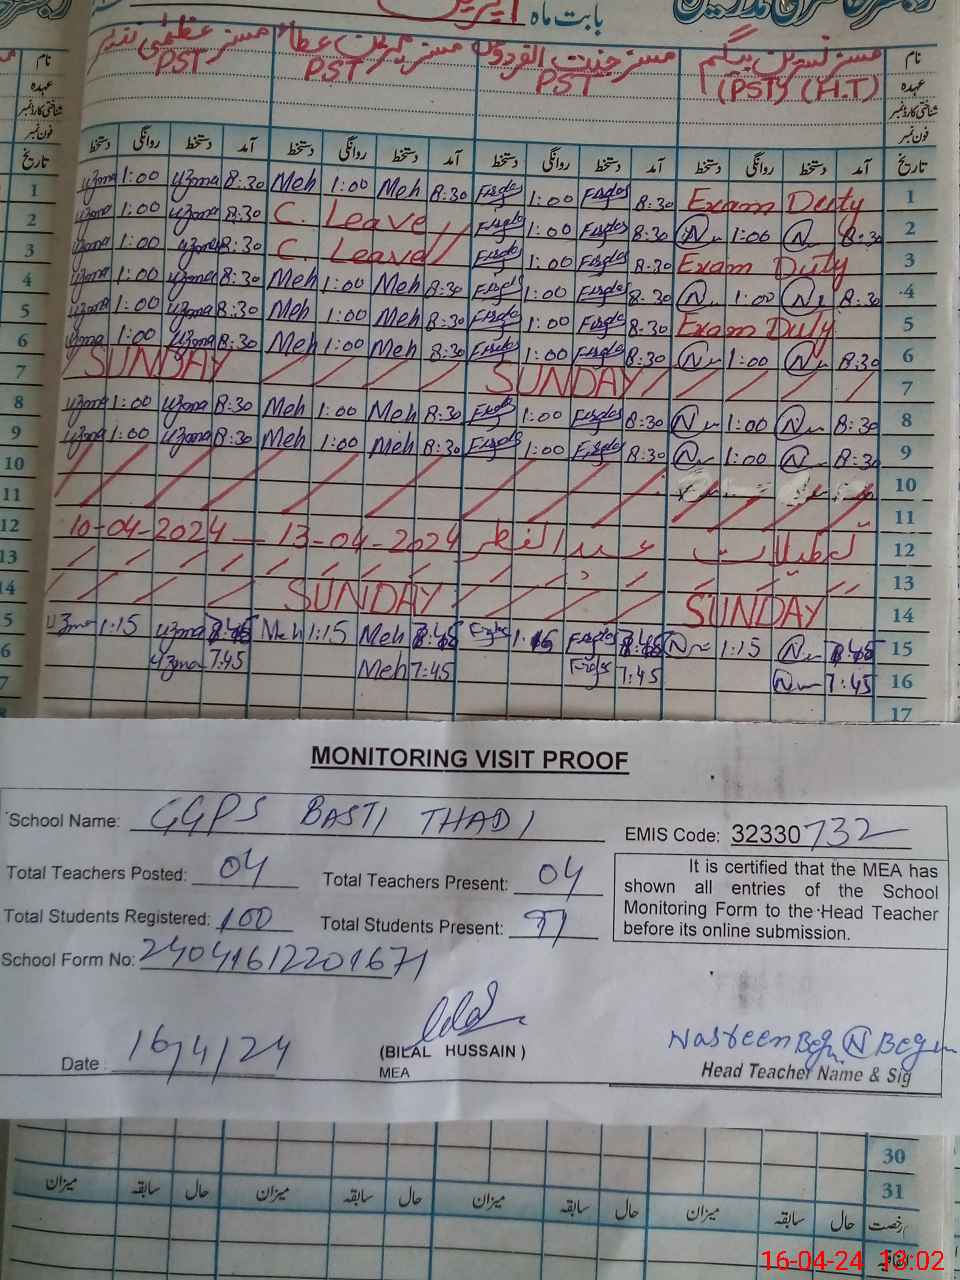 بابت ماہ اپریل
نام مسز نسرین بیگم مسز جنت الفردوس مسز مہرین عطاء مسز عظمیٰ
عہدہ PST (H.T) PST PST PST
شناختی کارڈ نمبر
فون نمبر
تاریخ آمد دستخط روانگی دستخط آمد دستخط روانگی دستخط آمد دستخط روانگی دستخط آمد دستخط روانگی دستخط تاریخ
1 uzma 1:00 uzma 8:30 Meh 1:00 Meh 8:30 Firdos 1:00 Firdos 8:30 Exam Duty 1
2 uzma 1:00 uzma 8:30 C. Leave Firdos 1:00 Firdos 8:30 N 1:00 N 8:30 2
3 uzma 1:00 uzma 8:30 C. Leave Firdos 1:00 Firdos 8:30 Exam Duty 3
4 uzma 1:00 uzma 8:30 Meh 1:00 Meh 8:30 Firdos 1:00 Firdos 8:30 N 1:00 N 8:30 4
5 uzma 1:00 uzma 8:30 Meh 1:00 Meh 8:30 Firdos 1:00 Firdos 8:30 Exam Duty 5
6 uzma 1:00 uzma 8:30 Meh 1:00 Meh 8:30 Firdos 1:00 Firdos 8:30 N 1:00 N 8:30 6
7 SUNDAY SUNDAY 7
8 uzma 1:00 uzma 8:30 Meh 1:00 Meh 8:30 Firdos 1:00 Firdos 8:30 N 1:00 N 8:30 8
9 uzma 1:00 uzma 8:30 Meh 1:00 Meh 8:30 Firdos 1:00 Firdos 8:30 N 1:00 N 8:30 9
10 10
11 11
12 10-04-2024 — 13-04-2024 عید الفطر تعطیلات 12
13 13
14 SUNDAY SUNDAY 14
5 uzma 1:15 uzma 7:45 Meh 1:15 Meh 7:45 Firdos 1:15 Firdos 7:45 N 1:15 N 7:45 15
6 uzma 7:45 Meh 7:45 Firdos 7:45 N 7:45 16
7 17
MONITORING VISIT PROOF
School Name: GGPS BASTI THADI
EMIS Code: 32330732
Total Teachers Posted: 04 Total Teachers Present: 04
Total Students Registered: 100 Total Students Present: 91
It is certified that the MEA has
shown all entries of the School
Monitoring Form to the Head Teacher
before its online submission.
School Form No: 24041612201671
Date 16/4/24
(BILAL HUSSAIN)
MEA
Nasreen Begum N Begum
Head Teacher Name & Sig
30
31
رخصت حال سابقہ میزان حال سابقہ میزان حال سابقہ میزان حال سابقہ میزان
اتفاقیہ
16-04-24 13:02